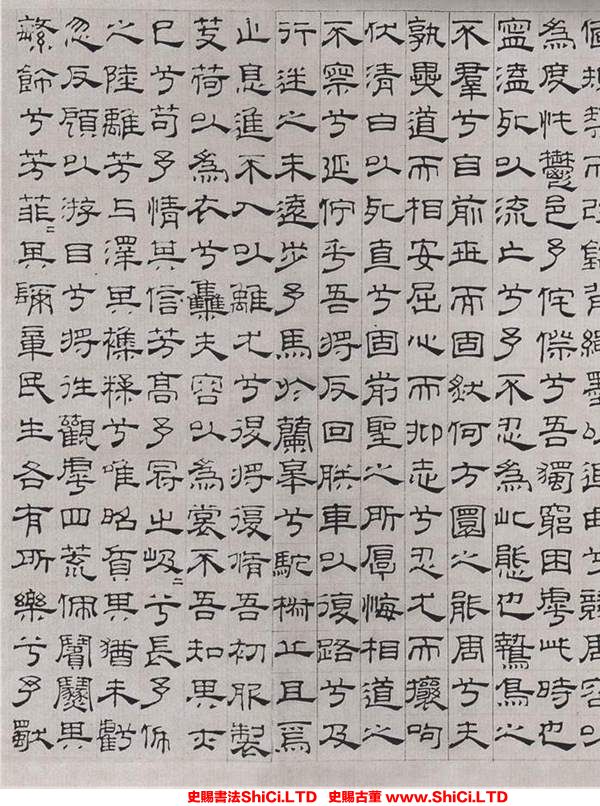 偭規榘而改錯背繩墨以追曲兮競周容以
為度忳鬱邑予侘傺兮吾獨窮困虖此時也
寧溘死以流亡兮予不忍為此態也鷙鳥之
不羣兮自前世而固然何方圜之能周兮夫
孰異道而相安屈心而抑志兮忍尤而攘呴
伏清白以死直兮固前聖之所厚悔相道之
不察兮延佇乎吾將反回朕車以復路兮及
行迷之未遠步予馬於蘭皋兮馳椒丘且焉
止息進不入以離尤兮退將復脩吾初服製
芰荷以為衣兮集夫容以為裳不吾知其亦
已兮苟予情其信芳高予冠之岌〻兮長予佩
之陸離芳与澤其襍糅兮唯昭質其猶未虧
忽反顧以游目兮將往觀虖四荒佩繽紛其
繁飾兮芳菲〻其彌章民生各有所樂兮予獨
史賜書法ShiCi.LTD 史賜古董 www.ShiCi.LTD